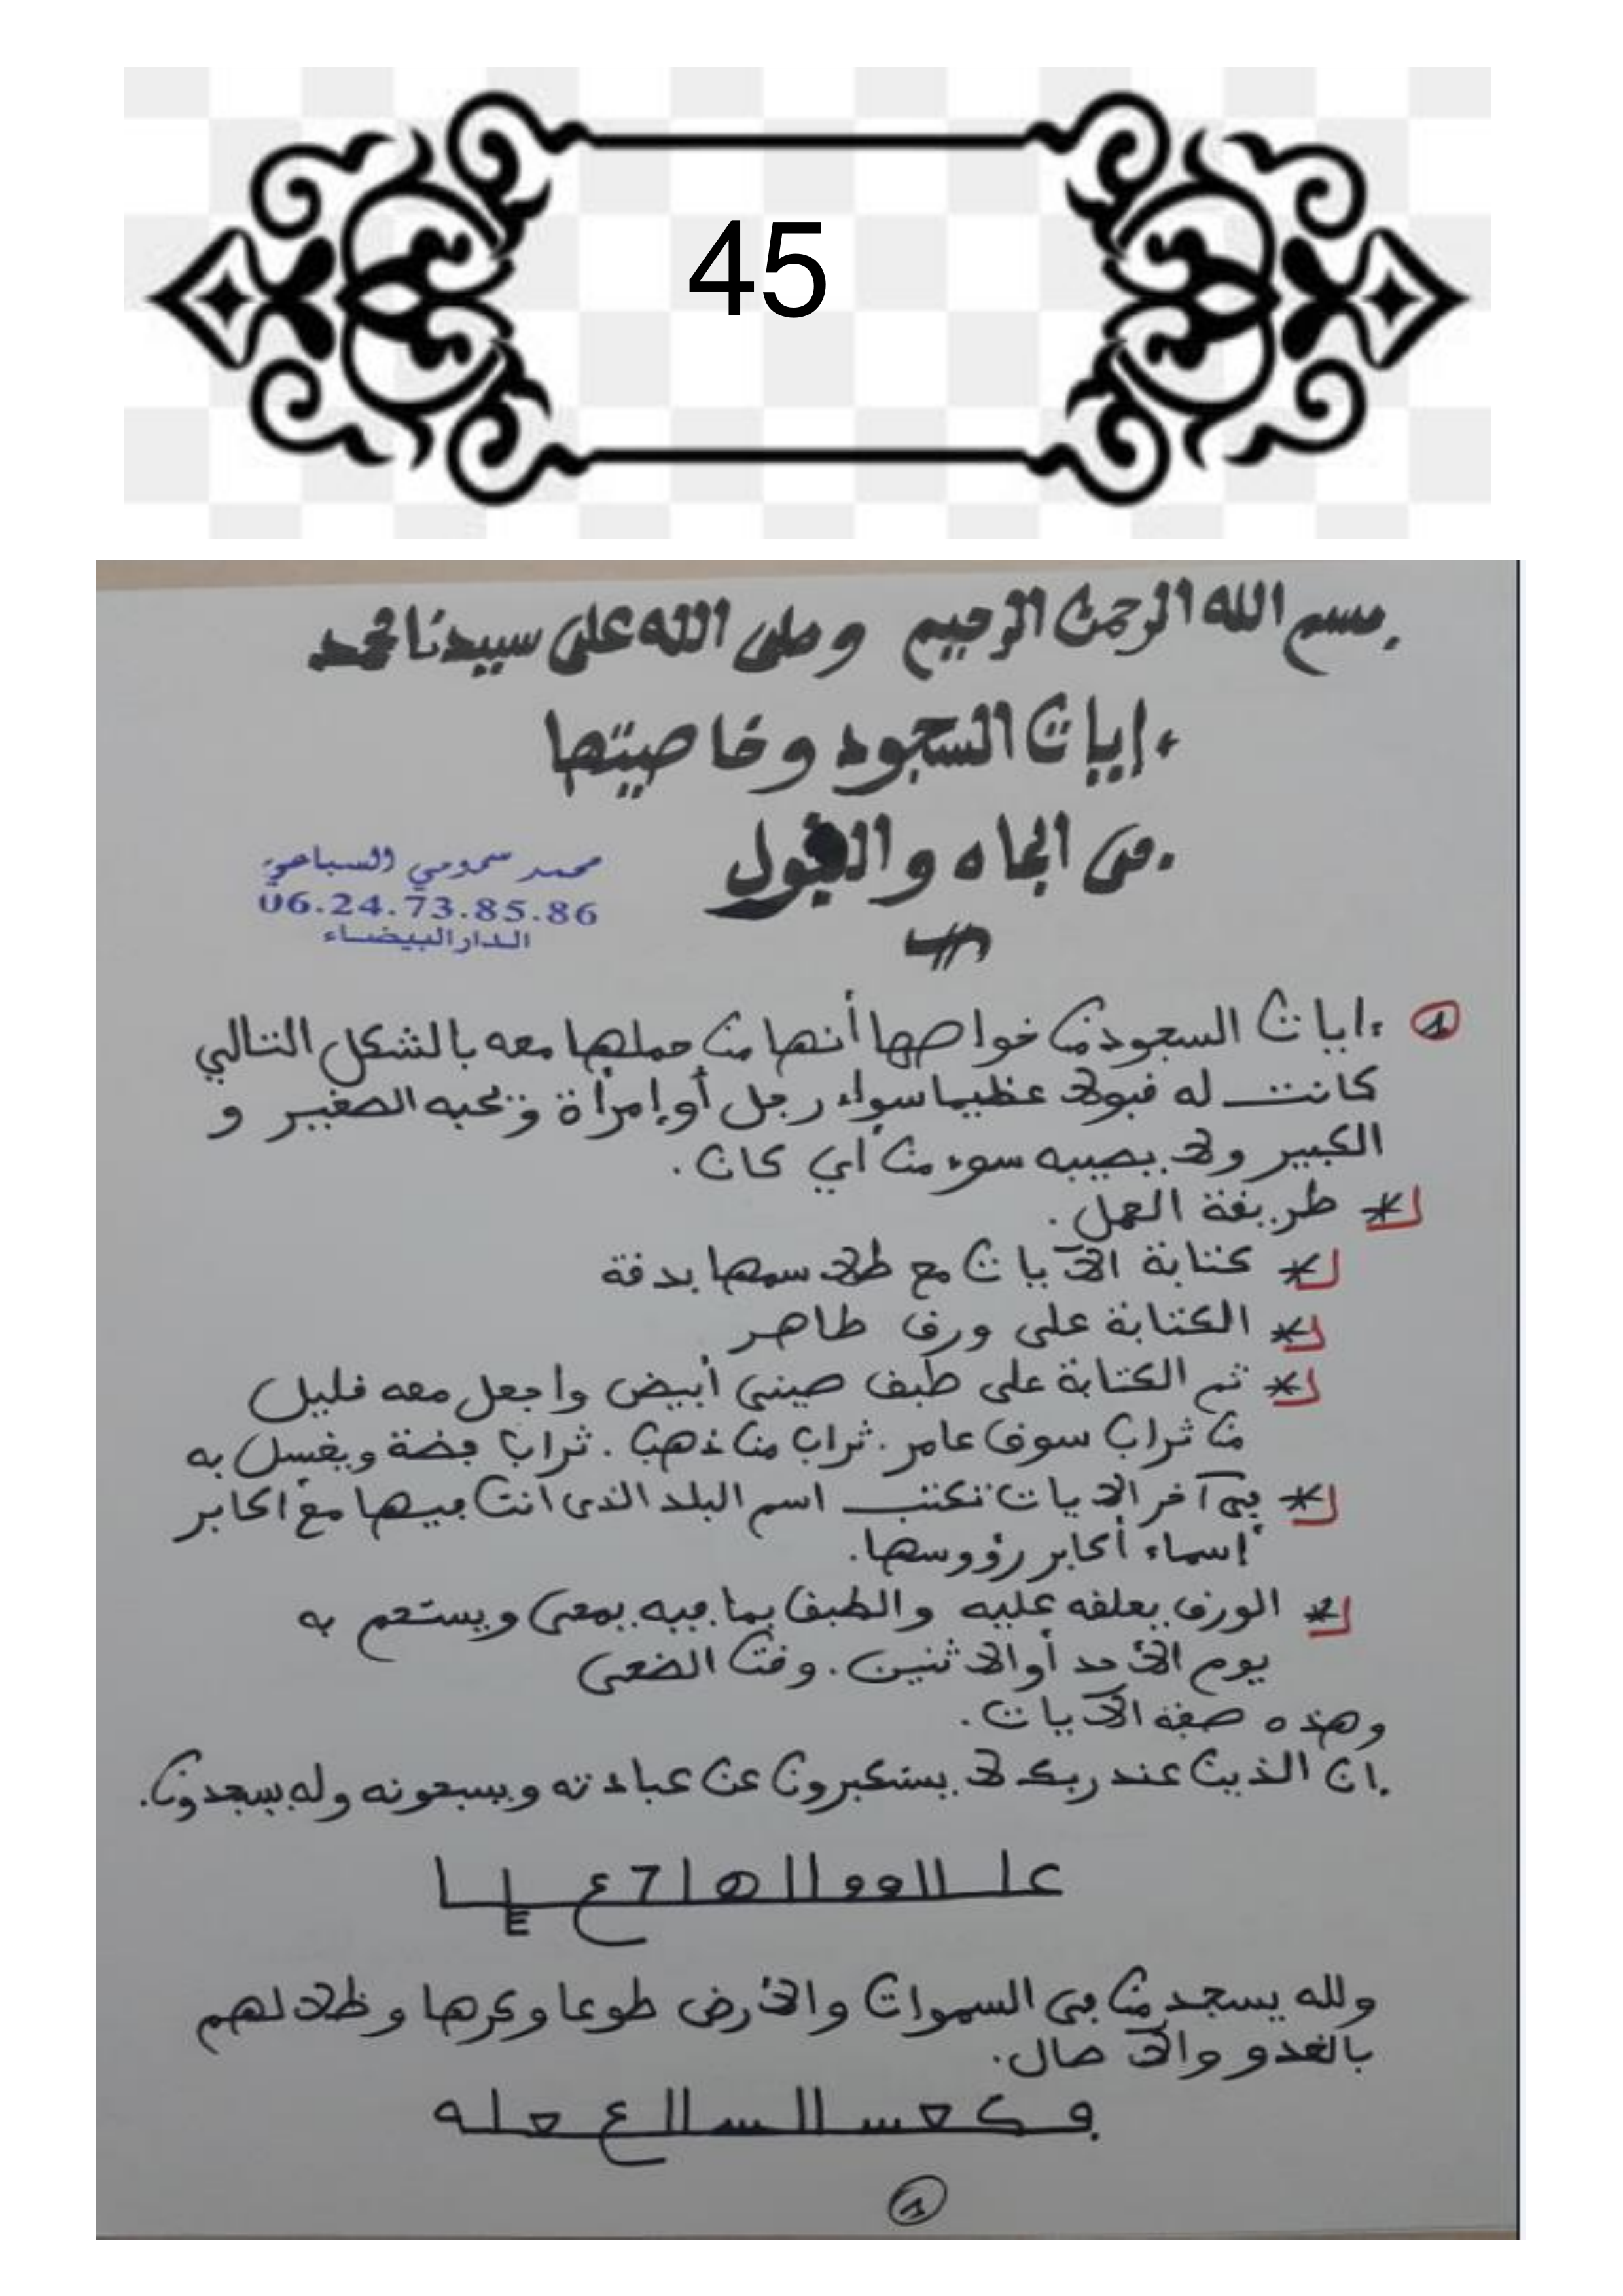 45
بسم الله الرحمن الرحيم وصلى الله على سيدنا محمد
ءايات السجود وخاصيتها
في الجاه والقبول
محمد سمومي السباعي
06.24.73.85.86
الدار البيضاء
1 ءايات السجود من خواصها أنها من حملها معه بالشكل التالي
كانت له قبولا عظيما سواء رجل أو إمرأة ويحبه الصغير و
الكبير ولا يصيبه سوء من أي كان.
* طريقة العمل.
* كتابة الآيات مع طلاسمها بدقة
* الكتابة على ورق طاهر
* ثم الكتابة على طبق صيني أبيض واجعل معه قليل
من ثراب سوق عامر. ثراب من ذهب. ثراب فضة ويغسل به
* في آخر الآيات تكتب اسم البلد الذي انت فيها مع اكابر
إسماء أكابر رؤوسها.
* الورق يعلقه عليه والطبق بما فيه يمحى ويستحم به
يوم الأحد أو الاثنين. وقت الضحى
وهذه صفة الآيات.
ان الذين عند ربك لا يستكبرون عن عبادته ويسبحونه وله يسجدون.
ولله يسجد من في السموات والأرض طوعا وكرها وظلالهم
بالغدو والآصال.
1